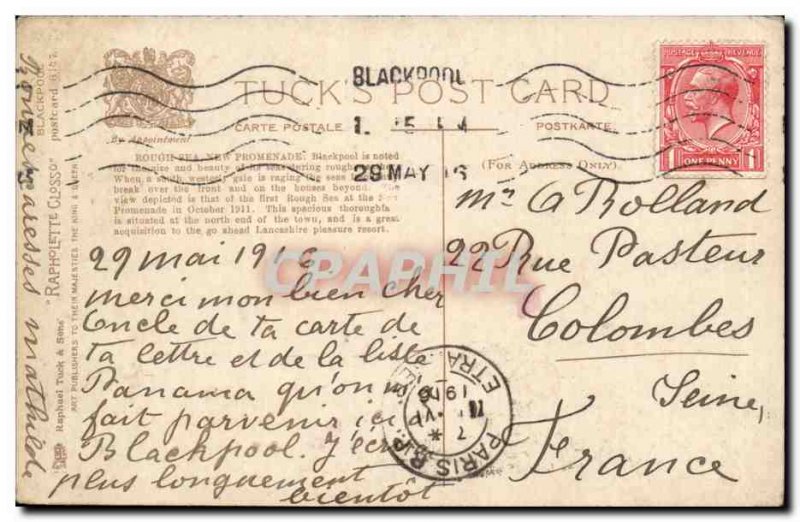 BLACKPOOL
TUCK'S POST CARD
CARTE POSTALE
POSTKARTE
By Appointment
(FOR ADDRESS ONLY).
29 MAY 16
POSTAGE REVENUE
1 ONE PENNY 1
ROUGH SEA, NEW PROMENADE. Blackpool is noted
for the size and beauty of its seas during rough
When a south westerly gale is raging the seas
break over the front and on the houses beyond. The
view depicted is that of the first Rough Sea at the
Promenade in October 1911. This spacious thoroughfare
is situated at the north end of the town, and is a great
acquisition to the go ahead Lancashire pleasure resort.
29 mai 1916
merci mon bien cher
Oncle de ta carte de
ta lettre et de la liste
Panama qu'on m'a
fait parvenir ici à
Blackpool. J'écrirai
plus longuement
bientôt
mathilde
Mr G Rolland
22 Rue Pasteur
Colombes
Seine,
France
PARIS
ETRANGER
1916
BLACKPOOL
postcard 6147
"RAPHOLETTE GLOSSO"
Raphael Tuck & Sons'
ART PUBLISHERS TO THEIR MAJESTIES THE KING & QUEEN
CPAPHIL